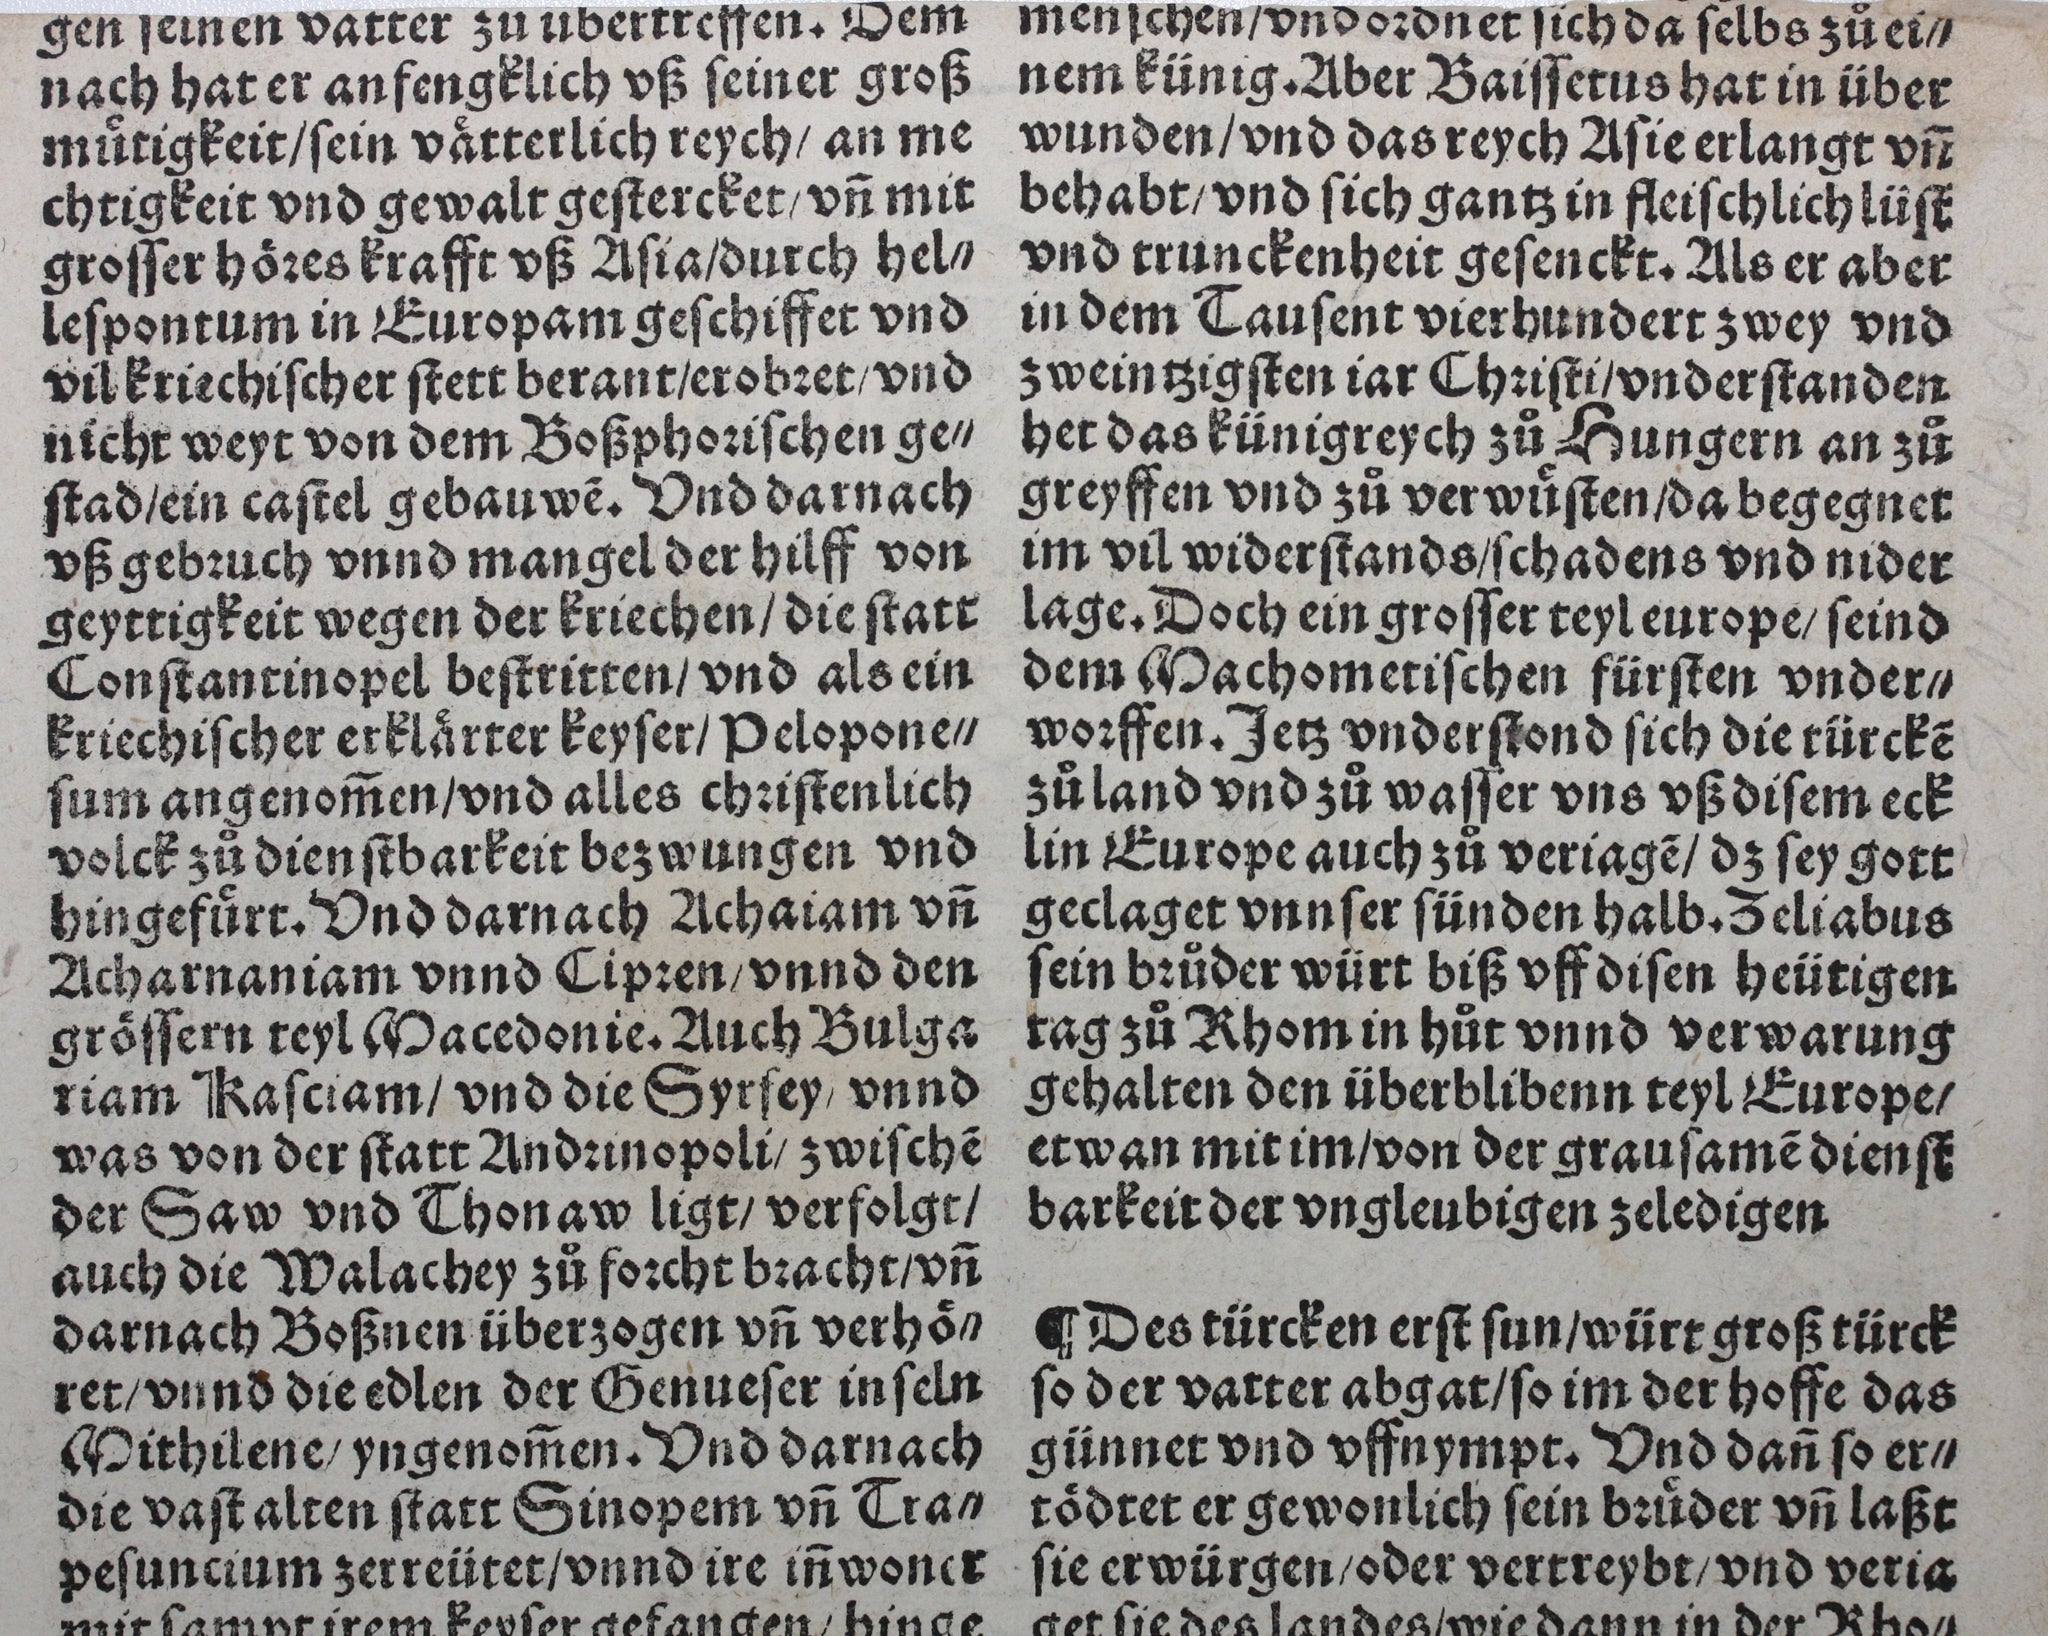 gen seinen vatter zů übertreffen. Dem
nach hat er anfengklich vß seiner groß
můtigkeit/sein våtterlich reych/ an me
chtigkeit vnd gewalt gestercket/vñ mit
grosser höres krafft vß Asia/durch hel⸗
lespontum in Europam geschiffet vnd
vil kriechischer stett berant/erobret/vnd
nicht weyt von dem Boßphorischen ge⸗
stad/ein castel gebauwē. Vnd darnach
vß gebruch vnnd mangel der hilff von
geyttigkeit wegen der kriechen/die statt
Constantinopel bestritten/vnd als ein
kriechischer erklärter keyser/Pelopone⸗
sum angenom̄en/vnd alles christenlich
volck zů dienstbarkeit bezwungen vnd
hingefürt. Vnd darnach Achaiam vñ
Acharnaniam vnnd Cipren/vnnd den
grössern teyl Macedonie. Auch Bulga
riam Rasciam/ vnd die Syrfey/ vnnd
was von der statt Andrinopoli/zwischē
der Saw vnd Thonaw ligt/verfolgt/
auch die Walachey zů forcht bracht/vñ
darnach Boßnen überzogen vñ verhö⸗
ret/vnnd die edlen der Genueser inseln
Mithilene/yngenom̄en. Vnd darnach
die vast alten statt Sinopem vñ Tra⸗
pesuncium zerreütet/vnnd ire iñwoner
mit sampt irem keyser gefangen/ hinge
menschen/vnd ordnet sich da selbs zů ei⸗
nem künig. Aber Baissetus hat in über
wunden/vnd das reych Asie erlangt vñ
behabt/vnd sich gantz in fleischlich lüst
vnd trunckenheit gesenckt. Als er aber
in dem Tausent vierhundert zwey vnd
zweintzigsten iar Christi/vnderstanden
het das künigreych zů Hungern an zů
greyffen vnd zů verwůsten/da begegnet
im vil widerstands/schadens vnd nider
lage. Doch ein grosser teyl europe/seind
dem Machometischen fürsten vnder⸗
worffen. Jetz vnderstond sich die türckē
zů land vnd zů wasser vns vß disem eck
lin Europe auch zů veriagē/dz sey gott
geclaget vnnser sünden halb. Zeliabus
sein brůder würt biß vff disen heütigen
tag zů Rhom in hůt vnnd verwarung
gehalten den überblibenn teyl Europe/
etwan mit im/von der grausamē dienst
barkeit der vngleubigen zeledigen
¶ Des türcken erst sun/würt groß türck
so der vatter abgat/so im der hoffe das
günnet vnd vffnympt. Vnd dañ so er⸗
tödtet er gewonlich sein brüder vñ laßt
sie erwürgen/oder vertreybt/vnd veria
get sie des landes/wie dann in der Rho⸗